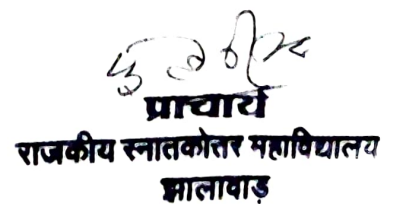 प्राचार्य
राजकीय स्नातकोतर महाविद्यालय
झालावाड़